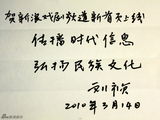 贺新浪戏剧频道新首页上线
传播时代信息
弘扬民族文化
2010年3月14日